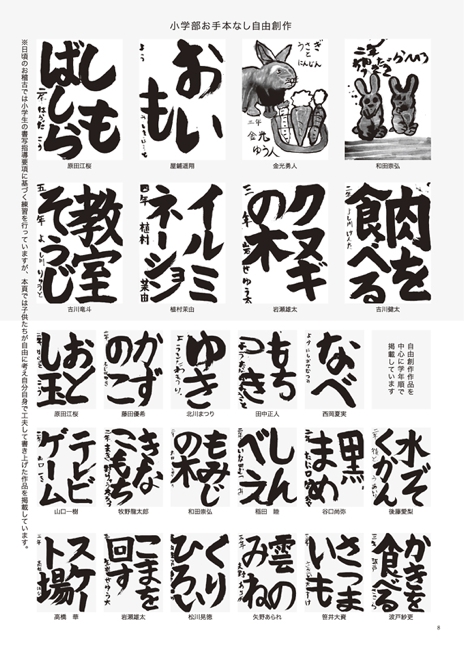 小学部お手本なし自由創作
※日頃のお稽古では小学生の書写指導要項に基づく練習を行っていますが、本頁では子供たちが自由に考え自分自身で工夫して書き上げた作品を掲載しています。
しも
ばしら
原田江桜
おも
い
屋舗遥翔
うさぎ
と
にんじん
二年
金光
ゆう人
金光勇人
二年
和田崇弘
教室
そうじ
五年
吉川竜斗
イルミ
ネーション
四年
植村
茉由
植村茉由
クヌギ
の木
岩瀬雄太
肉を
食べる
吉川健太
おと
し玉
原田江桜
かず
のこ
藤田優希
ゆき
北川まつり
もち
つき
田中正人
なべ
西岡夏実
自由創作作品を
中心に学年順で
掲載しています
テレビ
ゲーム
山口一樹
きな
こもち
牧野龍太郎
もみじ
の木
和田崇弘
しん
べえ
稲田 陸
黒
まめ
谷口尚弥
水ぞ
くかん
後藤愛梨
スケー
ト場
高橋 華
こまを
回す
岩瀬雄太
くり
ひろい
松川晃徳
雲の
みね
矢野あられ
さつま
いも
笹井大資
かきを
食べる
波戸紗更
8